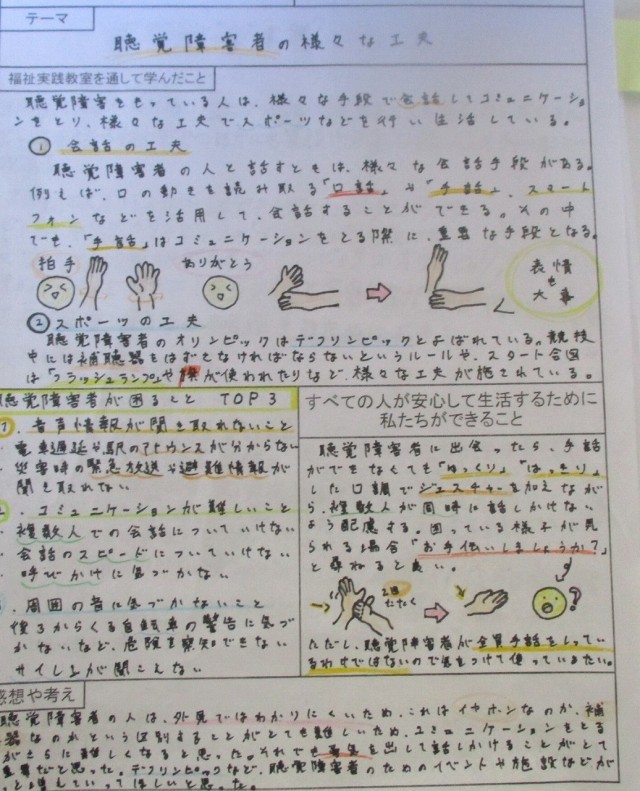 テーマ
聴覚障害者の様々な工夫
福祉実践教室を通して学んだこと
聴覚障害をもっている人は、様々な手段で会話してコミュニケーショ
ンをとり、様々な工夫でスポーツなどを行い生活している。
① 会話の工夫
聴覚障害者の人と話すときは、様々な会話手段がある。
例えば、口の動きを読み取る「口話」や「手話」、スマート
フォンなどを活用して、会話することができる。その中
でも、「手話」はコミュニケーションをとる際に、重要な手段となる。
拍手 ありがとう
表情
も
大事
② スポーツの工夫
聴覚障害者のオリンピックはデフリンピックとよばれている。競技
中には補聴器をはずさなければならないというルールや、スタート合図
は「フラッシュランプ」や旗が使われたりなど、様々な工夫が施されている。
聴覚障害者が困ること TOP 3
1. 音声情報が聞き取れないこと
・電車遅延や駅のアナウンスが分からない
・災害時の緊急放送や避難情報が
聞き取れない
2. コミュニケーションが難しいこと
・複数人での会話についていけない
・会話のスピードについていけない
・呼びかけに気づかない
3. 周囲の音に気づかないこと
後ろからくる自転車の警告に気づ
かないなど、危険を察知できない
サイレンが聞こえない
すべての人が安心して生活するために
私たちができること
聴覚障害者に出会ったら、手話
ができなくても「ゆっくり」「はっきり」
した口調でジェスチャーを加えなが
ら、複数人が同時に話しかけない
よう配慮する。困っている様子が見
られる場合「お手伝いしましょうか？」
と尋ねると良い。
2回
たたく
?
ただし、聴覚障害者が全員手話をしてい
るわけではないので気をつけて使っていきたい。
感想や考え
聴覚障害者の人は、外見ではわかりにくいため、これはイヤホンなのか、補
器なのかという区別することがとても難しいため、コミュニケーションをとる
がさらに難しくなると思った。それでも勇気を出して話しかけることがとて
重要だと思った。デフリンピックなど、聴覚障害者のためのイベントや施設などが
っと増えていってほしいと思った。